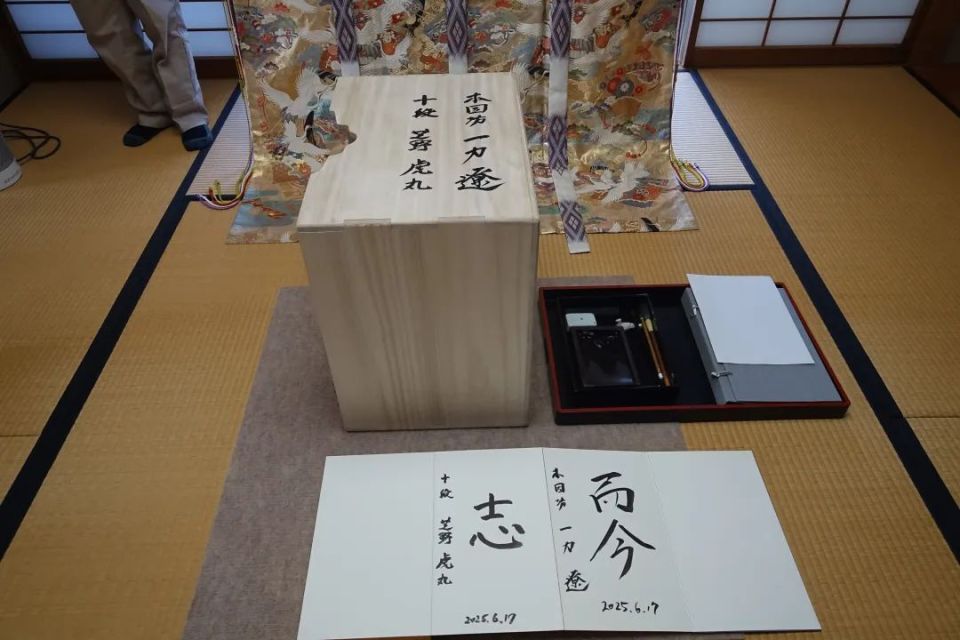 本因坊 一力 遼
十段 芝野 虎丸
而今
本因坊 一力 遼
2025.6.17
志
十段 芝野 虎丸
2025.6.17